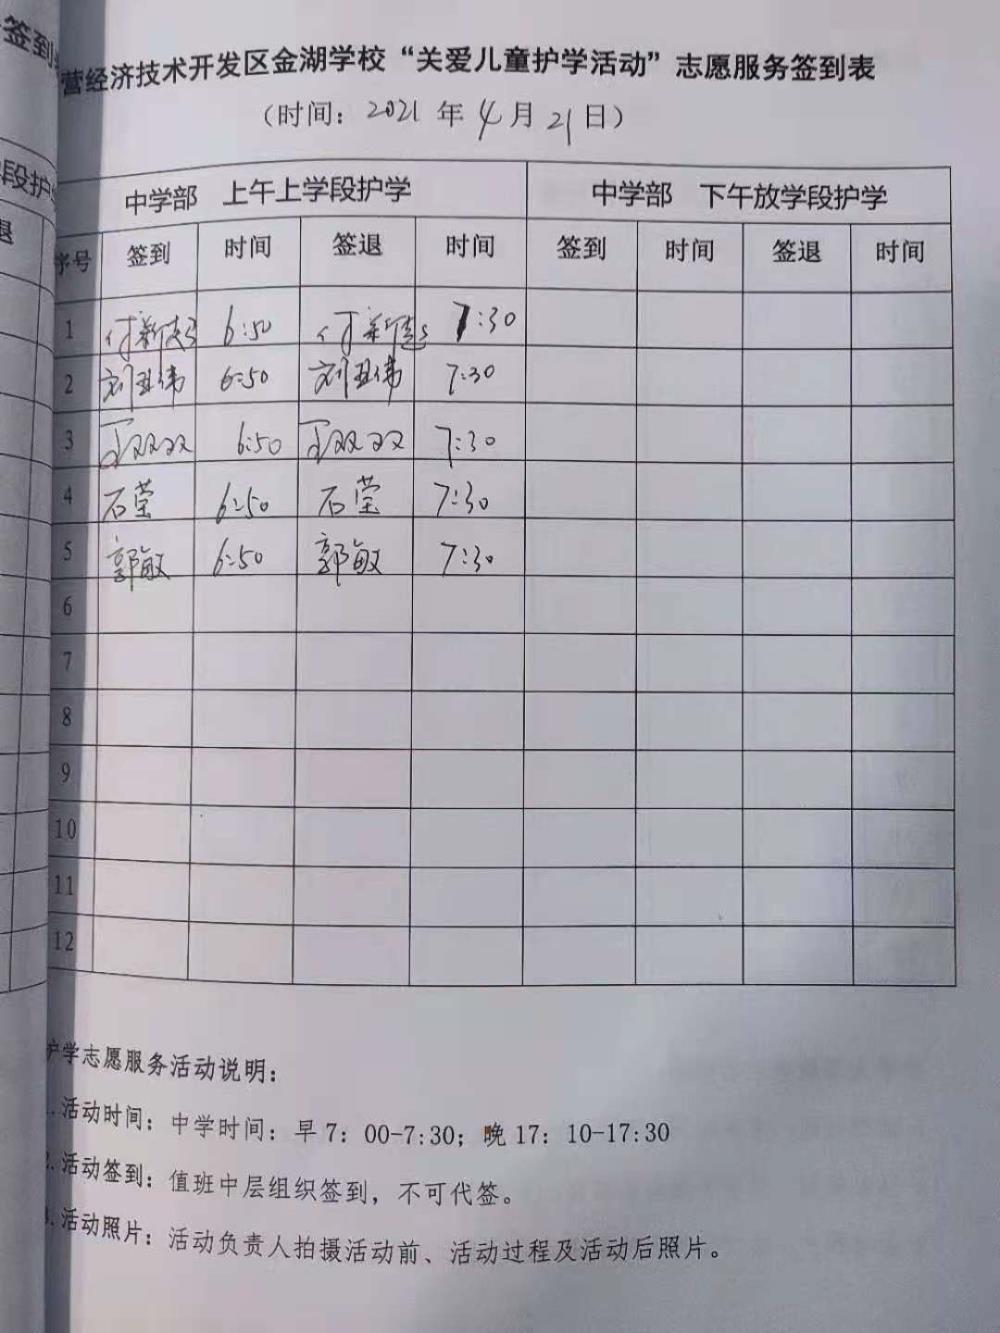 签到
营经济技术开发区金湖学校“关爱儿童护学活动”志愿服务签到表
（时间：2021 年 4 月 21 日）
段护
中学部 上午上学段护学 中学部 下午放学段护学
退
序号 签到 时间 签退 时间 签到 时间 签退 时间
1 付新 6:50 付新 7:30
2 刘亚伟 6:50 刘亚伟 7:30
3 丁双双 6:50 丁双双 7:30
4 石莹 6:50 石莹 7:30
5 郭敏 6:50 郭敏 7:30
6
7
8
9
10
11
12
护学志愿服务活动说明：
1. 活动时间：中学时间：早 7：00-7:30；晚 17：10-17:30
2. 活动签到：值班中层组织签到，不可代签。
3. 活动照片：活动负责人拍摄活动前、活动过程及活动后照片。